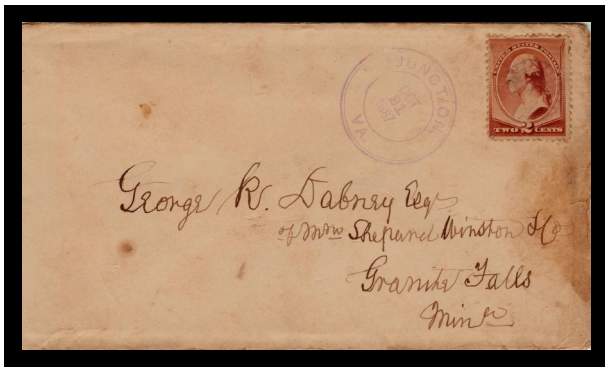 JUNCTION
VA.
OCT
UNITED STATES POSTAGE
TWO 2 CENTS
George R. Dabney Esq
of Shepard Winston & Co
Granite Falls
Minn